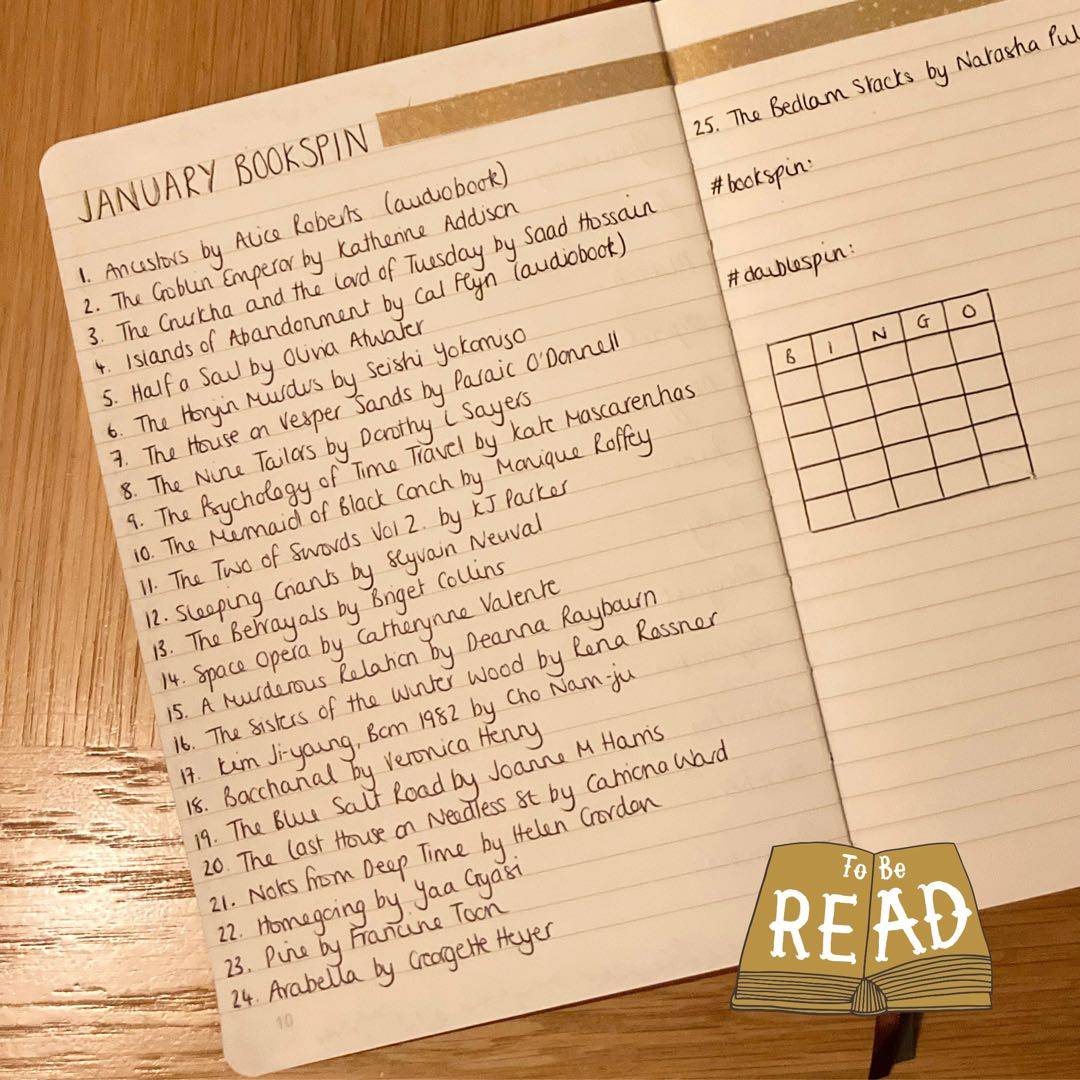 JANUARY BOOKSPIN
1. Ancestors by Alice Roberts (audiobook)
2. The Goblin Emperor by Katherine Addison
3. The Gurkha and the Lord of Tuesday by Saad Hossain
4. Islands of Abandonment by Cal Flyn (audiobook)
5. Half a Soul by Olivia Atwater
6. The Honjin Murders by Seishi Yokomiso
7. The House on Vesper Sands by Paraic O'Donnell
8. The Nine Tailors by Dorothy L Sayers
9. The Psychology of Time Travel by Kate Mascarenhas
10. The Mermaid of Black Conch by Monique Roffey
11. The Two of Swords Vol 2. by KJ Parker
12. Sleeping Giants by Slyvain Neuval
13. The Betrayals by Briget Collins
14. Space Opera by Catherynne Valente
15. A Murderous Relation by Deanna Raybourn
16. The Sisters of the Winter Wood by Rena Rossner
17. Kim Ji-young, Born 1982 by Cho Nam-ju
18. Bacchanal by Veronica Henry
19. The Blue Salt Road by Joanne M Harris
20. The Last House on Needless St by Catriona Ward
21. Notes from Deep Time by Helen Gordon
22. Homegoing by Yaa Gyasi
23. Pine by Francine Toon
24. Arabella by Georgette Heyer
10
25. The Bedlam Stacks by Natasha Pul
#bookspin:
#doublespin:
B I N G O
To Be
READ